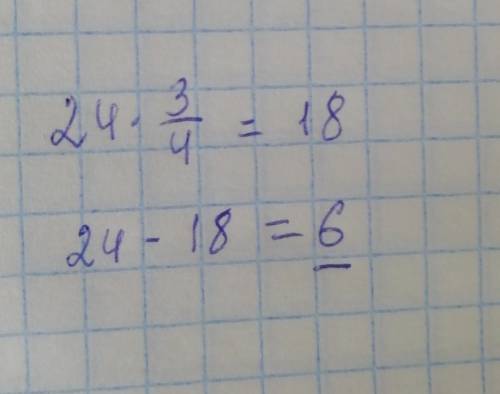 24 · 3/4 = 18
24 - 18 = 6